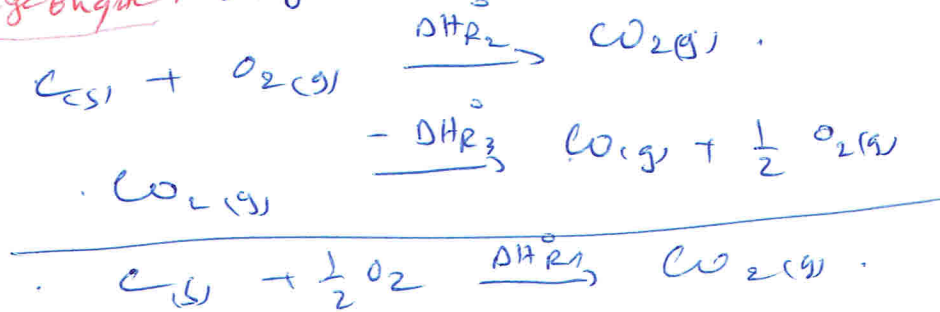 C(s) + O2(g) ΔHR2° → CO2(g) .
. CO2(g) - ΔHR3° → CO(g) + 1/2 O2(g)
. C(s) + 1/2 O2 ΔHR1° → CO2(g) .